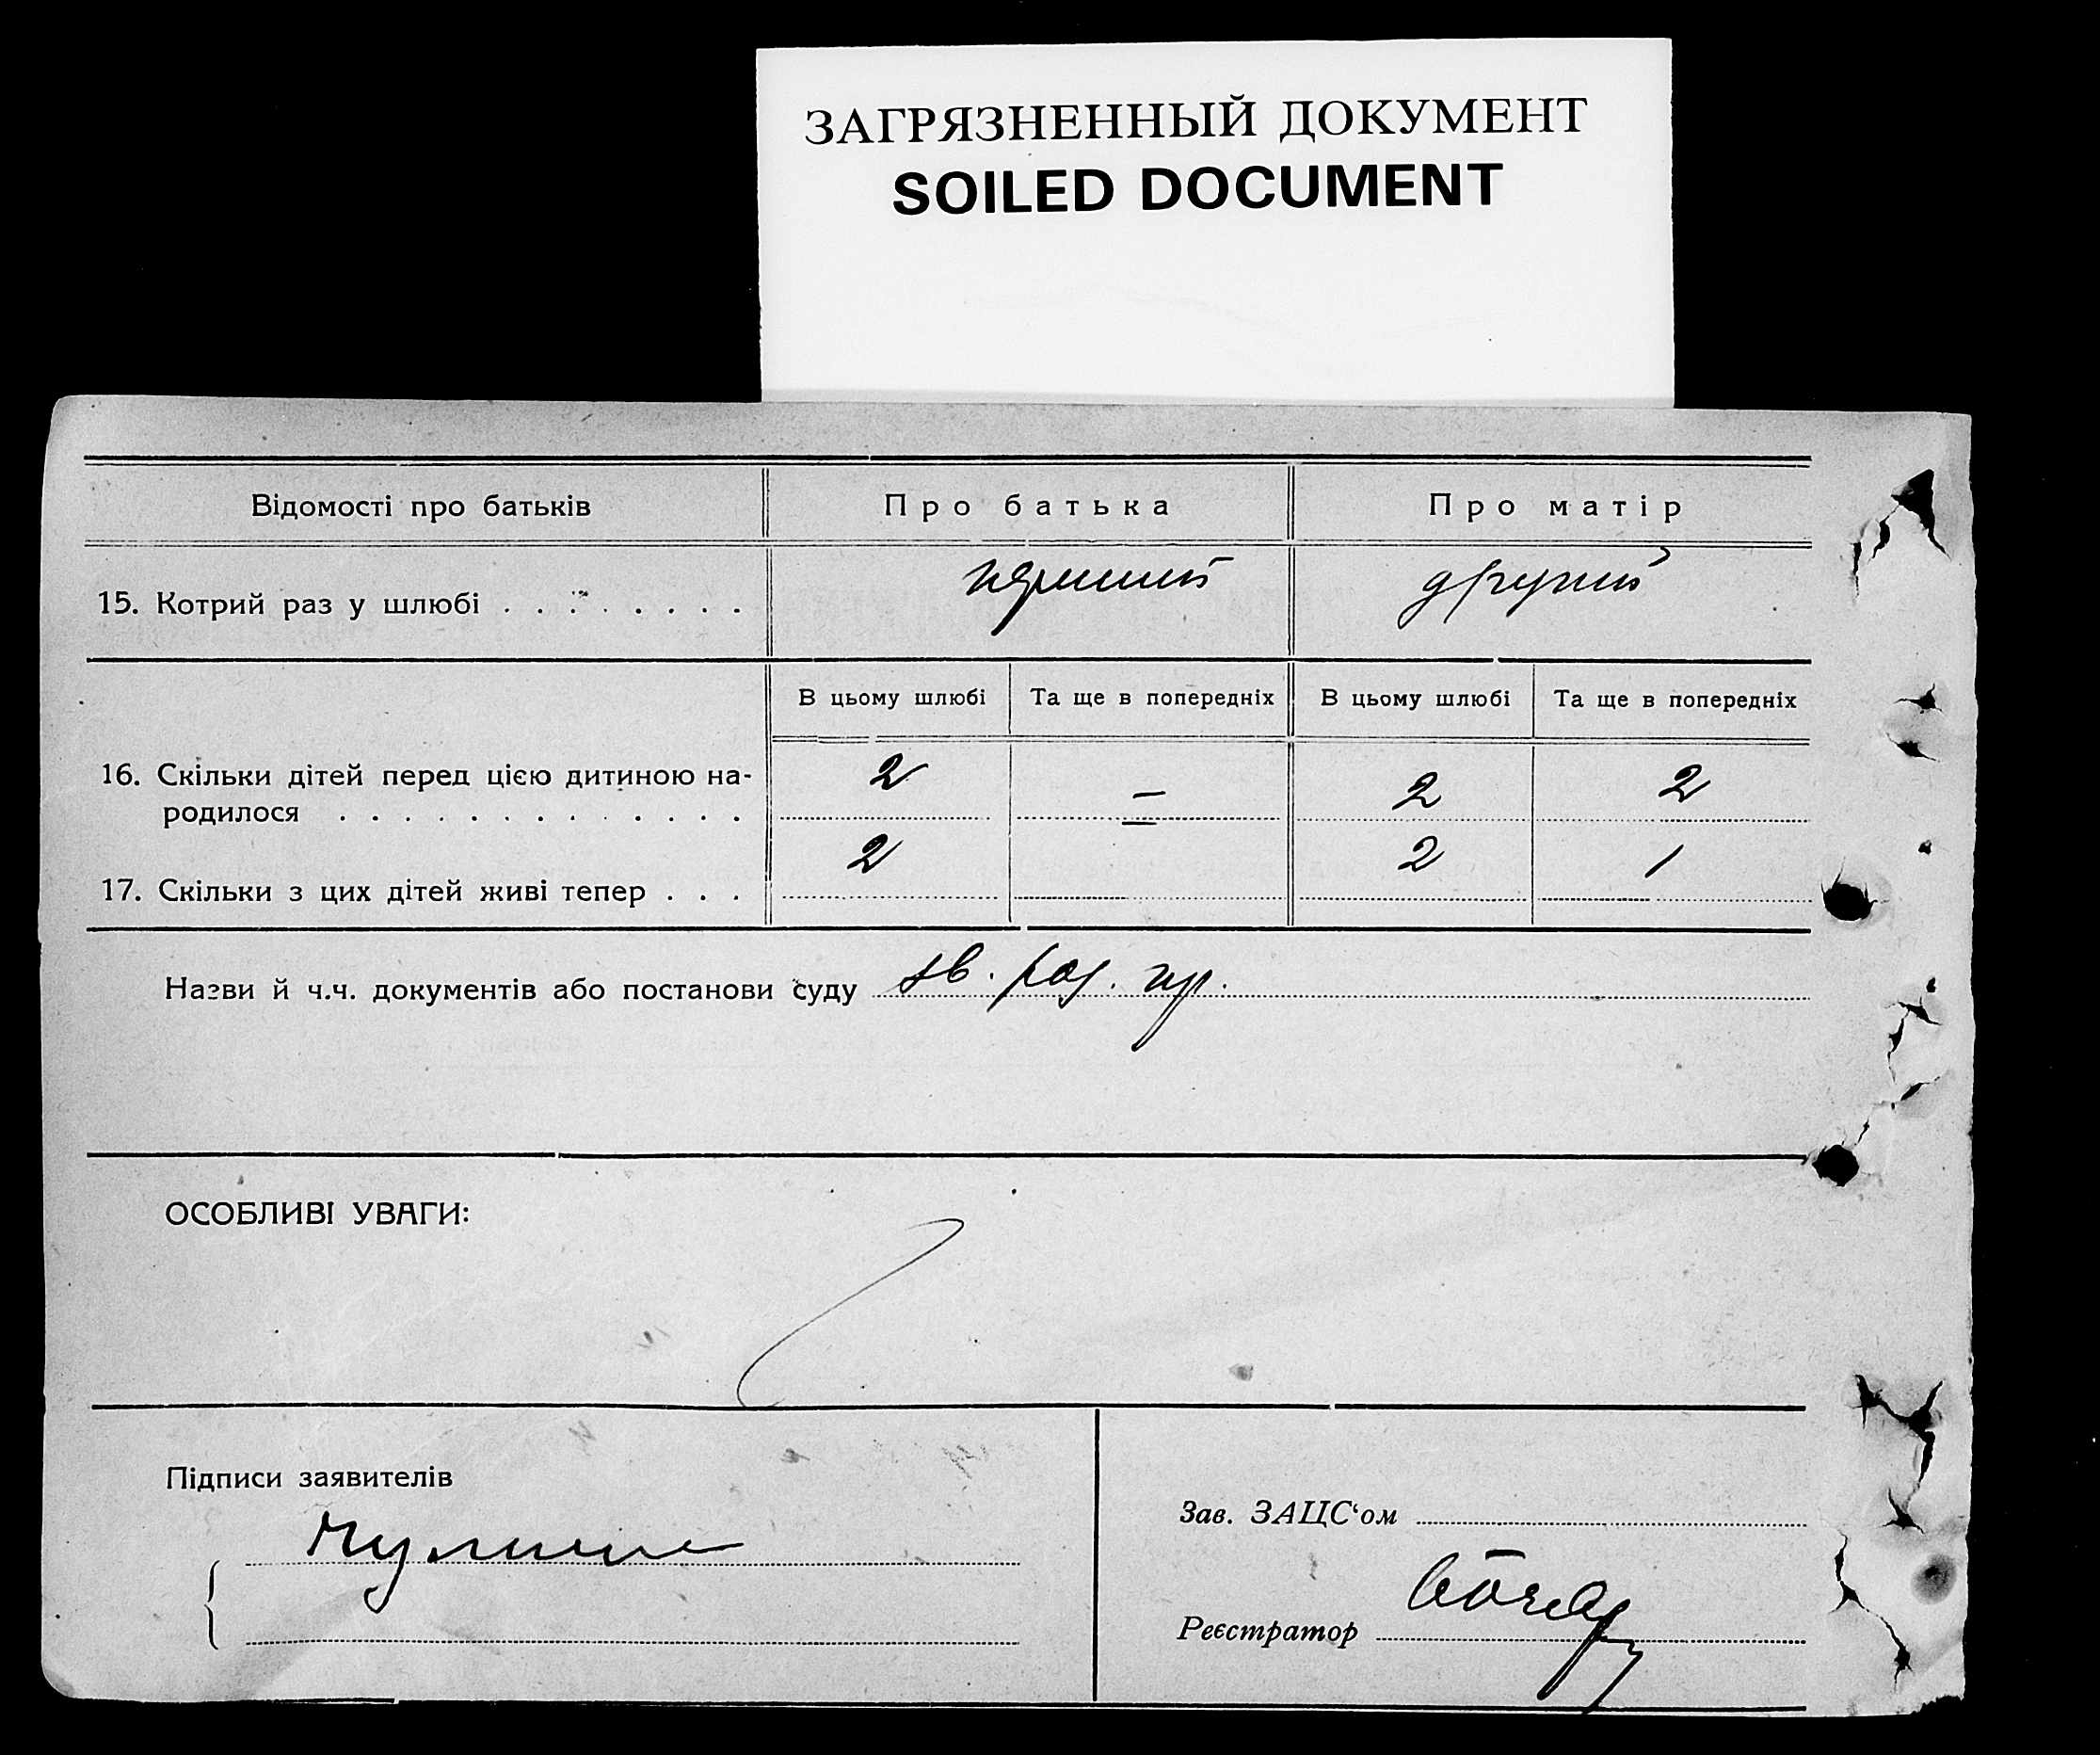 ЗАГРЯЗНЕННЫЙ ДОКУМЕНТ
SOILED DOCUMENT
Відомості про батьків Про батька Про матір
15. Котрий раз у шлюбі . . . . . . . . перший другий
В цьому шлюбі Та ще в попередніх В цьому шлюбі Та ще в попередніх
16. Скільки дітей перед цією дитиною на-
родилося . . . . . . . . . . . . . 2 — 2 2
17. Скільки з цих дітей живі тепер . . . 2 2 1
Назви й ч.ч. документів або постанови суду
ОСОБЛИВІ УВАГИ:
Підписи заявителів
Зав. ЗАЦС‘ом
Реєстратор